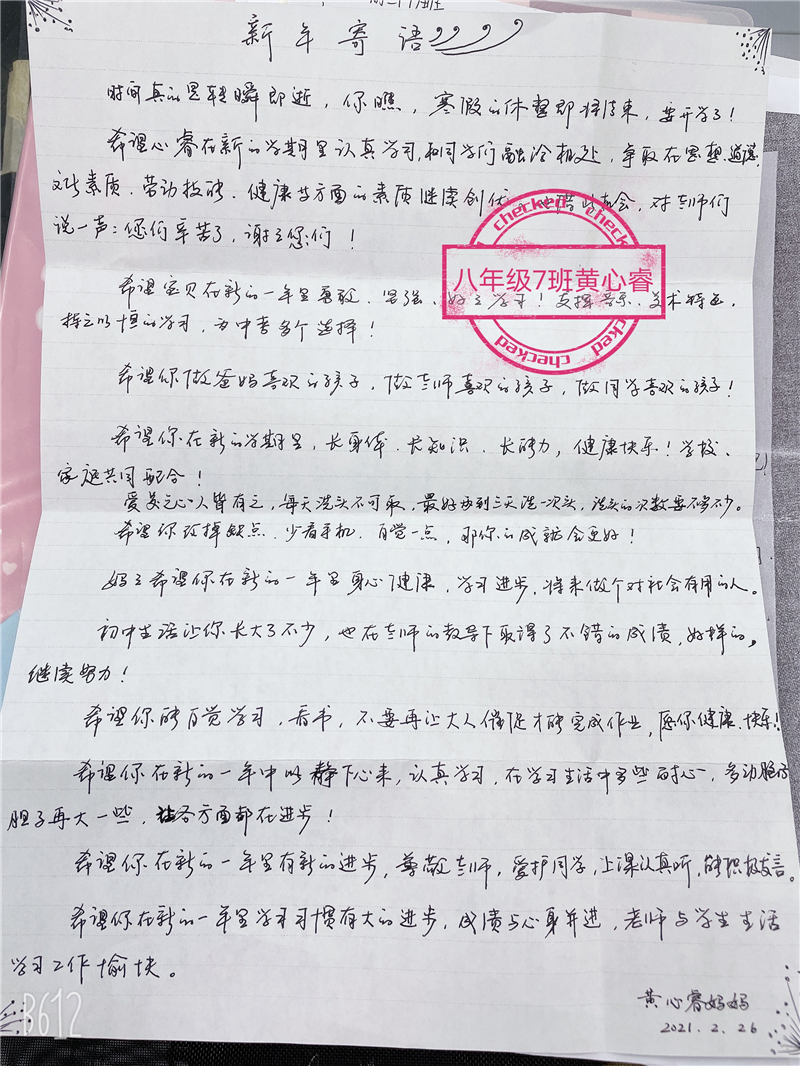 新年寄语
时间真的是转瞬即逝，你瞧，寒假的休整即将结束，要开学了！
希望心睿在新的学期里认真学习，和同学们融洽相处，争取在思想、道德、
文化素质、劳动技能、健康等方面的素质继续创优，借此机会，对老师们
说一声：您们辛苦了，谢谢您们！
checked checked
八年级7班黄心睿
checked
希望宝贝在新的一年里勇敢、坚强、好好学习！发挥音乐、美术特长，
持之以恒的学习，为中考多个选择！
希望你做爸妈喜欢的孩子，做老师喜欢的孩子，做同学喜欢的孩子！
希望你在新的学期里，长身体、长知识、长能力，健康快乐！学校、
家庭共同配合！
爱美之心人皆有之，每天洗头不可取，最好两到三天洗一次头，洗头的次数要不多不少。
希望你改掉缺点、少看手机、自觉一点，那你的成就会更好！
妈妈希望你在新的一年里身心健康，学习进步，将来做个对社会有用的人。
初中生活让你长大了不少，也在老师的教导下取得了不错的成绩，好样的，
继续努力！
希望你能自觉学习，看书，不要再让大人催促才能完成作业，愿你健康、快乐！
希望你在新的一年中以静下心来，认真学习，在学习生活中多些耐心，多动脑筋
胆子再大一些，让各方面都在进步！
希望你在新的一年里有新的进步，尊敬老师，爱护同学，上课认真听，能积极发言。
希望你在新的一年里学习习惯有大的进步，成绩与心身并进，老师与学生生活
学习工作愉快。
黄心睿妈妈
2021.2.26
B612